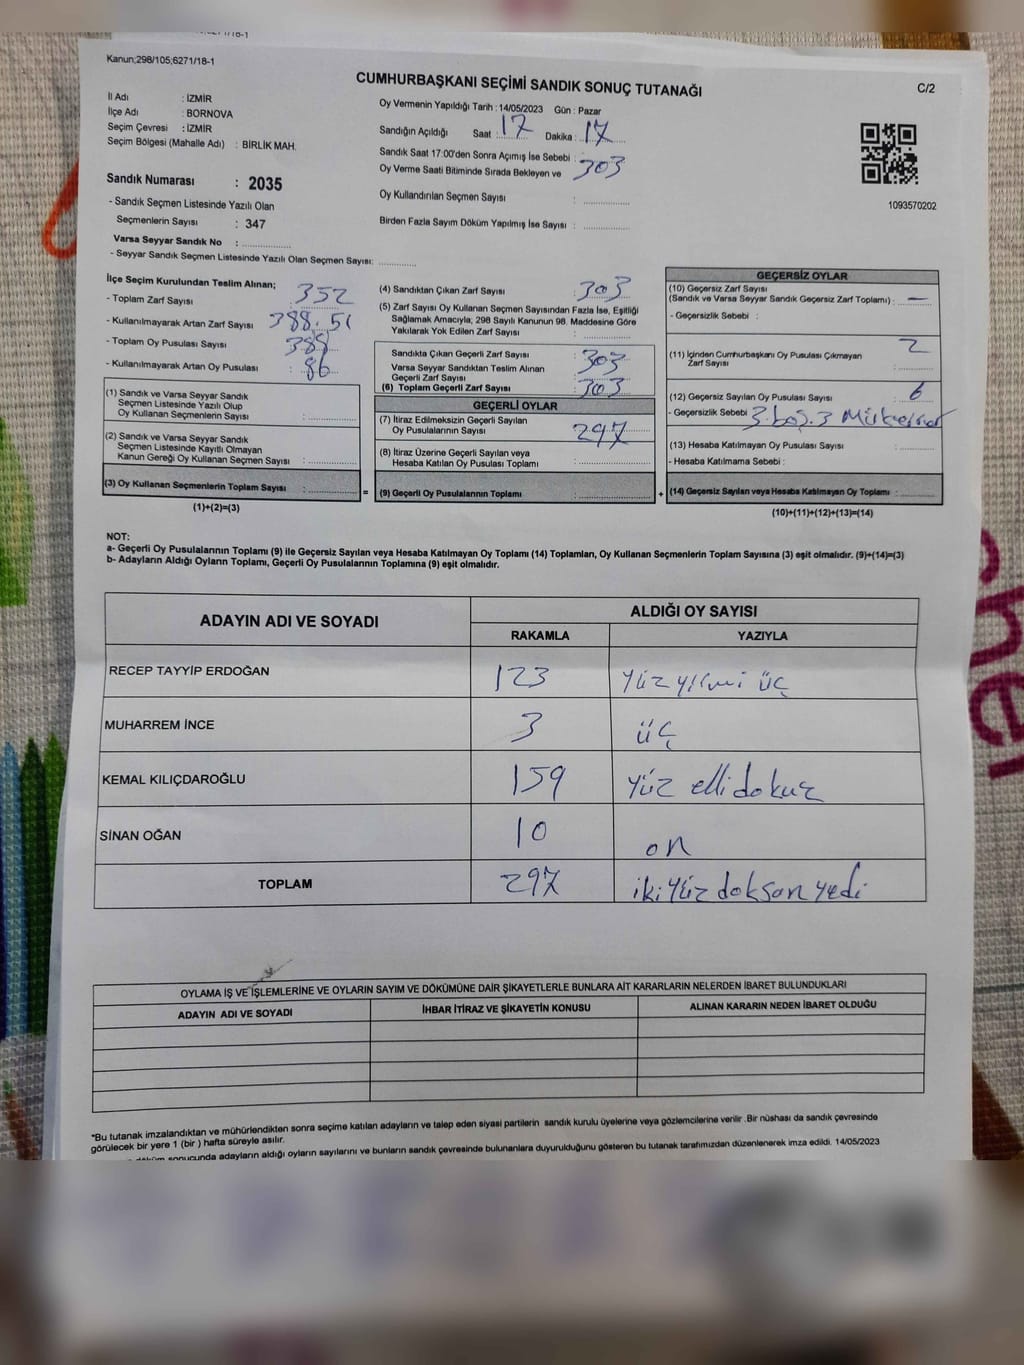 Kanun;298/105;6271/18-1
CUMHURBAŞKANI SEÇİMİ SANDIK SONUÇ TUTANAĞI
C/2
İl Adı : İZMİR
İlçe Adı : BORNOVA
Seçim Çevresi : İZMİR
Seçim Bölgesi (Mahalle Adı) : BİRLİK MAH.
Sandık Numarası : 2035
- Sandık Seçmen Listesinde Yazılı Olan
Seçmenlerin Sayısı : 347
Varsa Seyyar Sandık No :
- Seyyar Sandık Seçmen Listesinde Yazılı Olan Seçmen Sayısı:
Oy Vermenin Yapıldığı Tarih : 14/05/2023 Gün : Pazar
Sandığın Açıldığı Saat : 17 Dakika : 17
Sandık Saat 17:00'den Sonra Açımış İse Sebebi :
Oy Verme Saati Bitiminde Sırada Bekleyen ve 303
Oy Kullandırılan Seçmen Sayısı :
Birden Fazla Sayım Döküm Yapılmış İse Sayısı :
1093570202
İlçe Seçim Kurulundan Teslim Alınan;
- Toplam Zarf Sayısı : 352
- Kullanılmayarak Artan Zarf Sayısı : 388. 51
- Toplam Oy Pusulası Sayısı : 388
- Kullanılmayarak Artan Oy Pusulası : 86
(1) Sandık ve Varsa Seyyar Sandık
Seçmen Listesinde Yazılı Olup
Oy Kullanan Seçmenlerin Sayısı :
(2) Sandık ve Varsa Seyyar Sandık
Seçmen Listesinde Kayıtlı Olmayan
Kanun Gereği Oy Kullanan Seçmen Sayısı :
(3) Oy Kullanan Seçmenlerin Toplam Sayısı :
(1)+(2)=(3)
(4) Sandıktan Çıkan Zarf Sayısı : 303
(5) Zarf Sayısı Oy Kullanan Seçmen Sayısından Fazla İse, Eşitliği
Sağlamak Amacıyla; 298 Sayılı Kanunun 98. Maddesine Göre
Yakılarak Yok Edilen Zarf Sayısı :
Sandıkta Çıkan Geçerli Zarf Sayısı : 303
Varsa Seyyar Sandıktan Teslim Alınan
Geçerli Zarf Sayısı :
(6) Toplam Geçerli Zarf Sayısı : 303
GEÇERLİ OYLAR
(7) İtiraz Edilmeksizin Geçerli Sayılan
Oy Pusulalarının Sayısı : 297
(8) İtiraz Üzerine Geçerli Sayılan veya
Hesaba Katılan Oy Pusulası Toplamı :
= (9) Geçerli Oy Pusulalarının Toplamı : +
GEÇERSİZ OYLAR
(10) Geçersiz Zarf Sayısı
(Sandık ve Varsa Seyyar Sandık Geçersiz Zarf Toplamı) : —
- Geçersizlik Sebebi :
(11) İçinden Cumhurbaşkanı Oy Pusulası Çıkmayan 2
Zarf Sayısı :
(12) Geçersiz Sayılan Oy Pusulası Sayısı : 6
- Geçersizlik Sebebi 3 boş. 3
(13) Hesaba Katılmayan Oy Pusulası Sayısı :
- Hesaba Katılmama Sebebi :
(14) Geçersiz Sayılan veya Hesaba Katılmayan Oy Toplamı :
(10)+(11)+(12)+(13)=(14)
NOT:
a- Geçerli Oy Pusulalarının Toplamı (9) ile Geçersiz Sayılan veya Hesaba Katılmayan Oy Toplamı (14) Toplamları, Oy Kullanan Seçmenlerin Toplam Sayısına (3) eşit olmalıdır. (9)+(14)=(3)
b- Adayların Aldığı Oyların Toplamı, Geçerli Oy Pusulalarının Toplamına (9) eşit olmalıdır.
ADAYIN ADI VE SOYADI
ALDIĞI OY SAYISI
RAKAMLA YAZIYLA
RECEP TAYYİP ERDOĞAN 123 yüz yirmi üç
MUHARREM İNCE 3 üç
KEMAL KILIÇDAROĞLU 159 yüz elli dokuz
SİNAN OĞAN 10 on
TOPLAM 297 iki yüz doksan yedi
OYLAMA İŞ VE İŞLEMLERİNE VE OYLARIN SAYIM VE DÖKÜMÜNE DAİR ŞİKAYETLERLE BUNLARA AİT KARARLARIN NELERDEN İBARET BULUNDUKLARI
ADAYIN ADI VE SOYADI İHBAR İTİRAZ VE ŞİKAYETİN KONUSU ALINAN KARARIN NEDEN İBARET OLDUĞU
*Bu tutanak imzalandıktan ve mühürlendikten sonra seçime katılan adayların ve talep eden siyasi partilerin sandık kurulu üyelerine veya gözlemcilerine verilir .Bir nüshası da sandık çevresinde
görülecek bir yere 1 (bir ) hafta süreyle asılır.
döküm sonucunda adayların aldığı oyların sayılarını ve bunların sandık çevresinde bulunanlara duyurulduğunu gösteren bu tutanak tarafımızdan düzenlenerek imza edildi. 14/05/2023